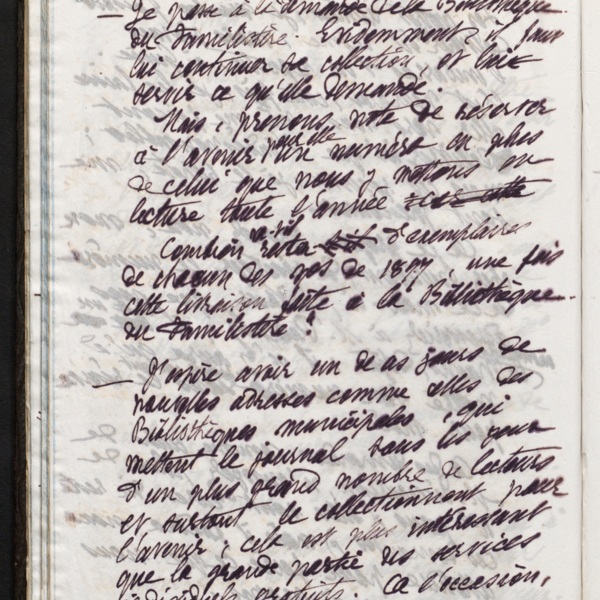 — Je passe à la demande de la Bibliothèque
du Familistère. Evidemment il faut
lui continuer sa collection, et faire
servir ce qu'elle demande.
Mais, prenons note de réserver
à l'avenir pour elle un numéro en plus
de celui que nous y mettons en
lecture toute l'année
Combien restera-t-il d'exemplaires
de chacun des nos de 1877, une fois
cette livraison faite à la Bibliothèque
du Familistère ?
— J'espère avoir un de ces jours de
nouvelles adresses comme celles des
Bibliothèques municipales, qui
mettent le journal sous les yeux
d'un plus grand nombre de lecteurs
et surtout le collectionnent pour
l'avenir ; cela est plus intéressant
que la grande partie des services
individuels gratuits. A l'occasion,